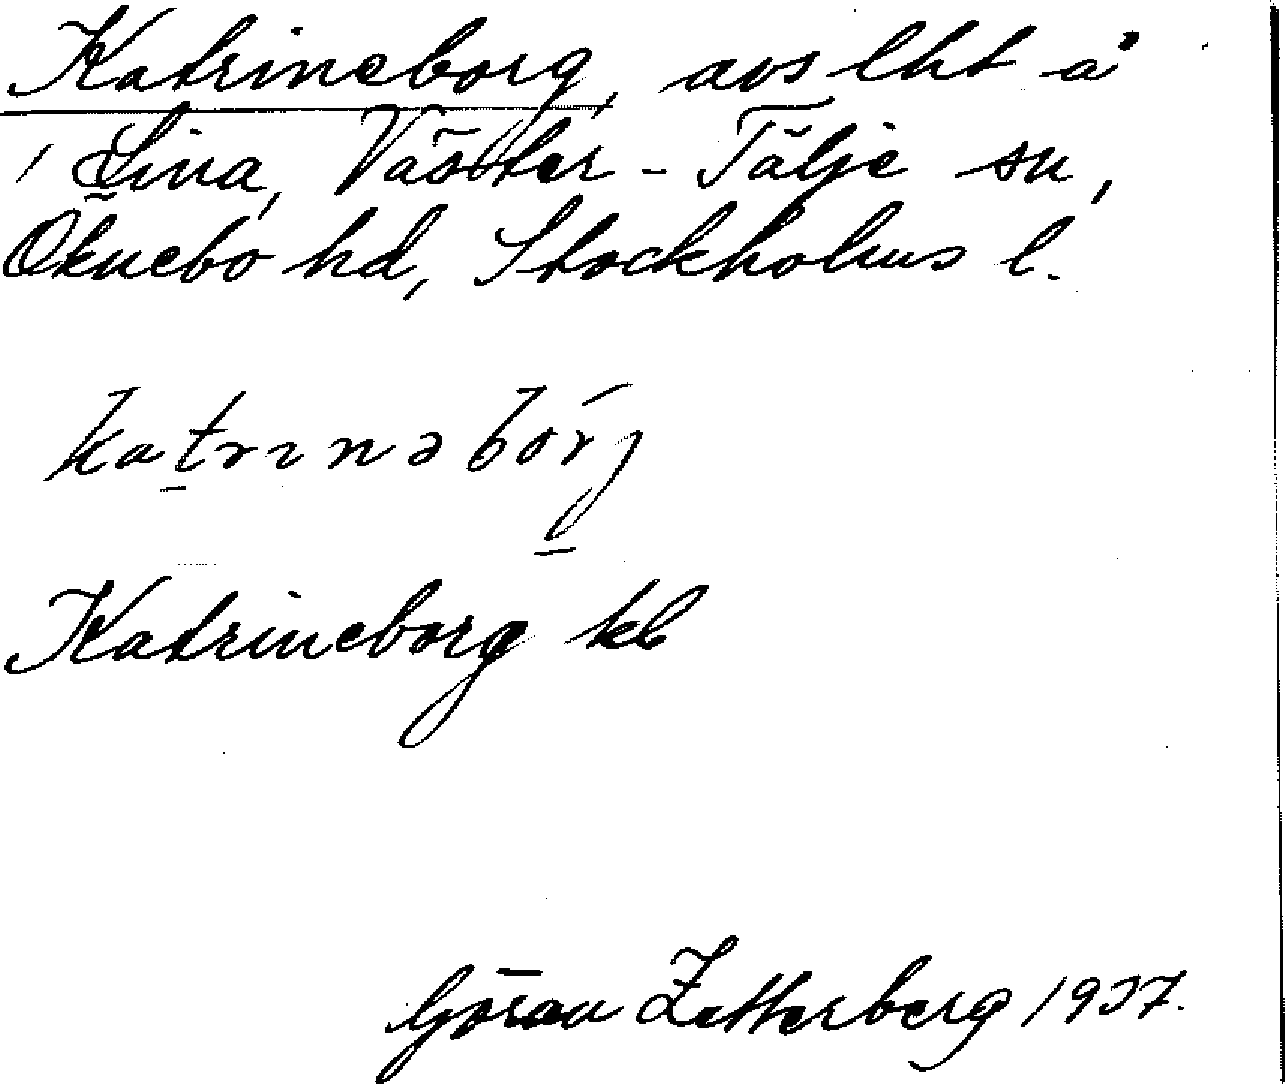 Katrineborg, avs lht å
Lina, Väster-Tälje sn,
Öknebo hd, Stockholms l.
katrinəbórj
Katrineborg kb
Göran Zetterberg 1937.